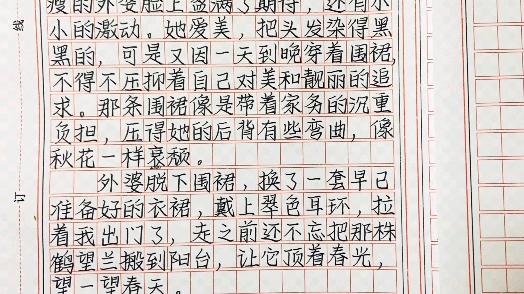 瘦的外婆脸上盛满了期待，还有小
小的激动。她爱美，把头发染得黑
黑的，可是又因一天到晚穿着围裙，
不得不压抑着自己对美和靓丽的追
求。那条围裙像是带着家务的沉重
负担，压得她的后背有些弯曲，像
秋花一样衰颓。
外婆脱下围裙，换了一套早已
准备好的衣裙，戴上翠色耳环，拉
着我出门了，走之前还不忘把那株
鹤望兰搬到阳台，让它顶着春光，
望一望春天。
线
订